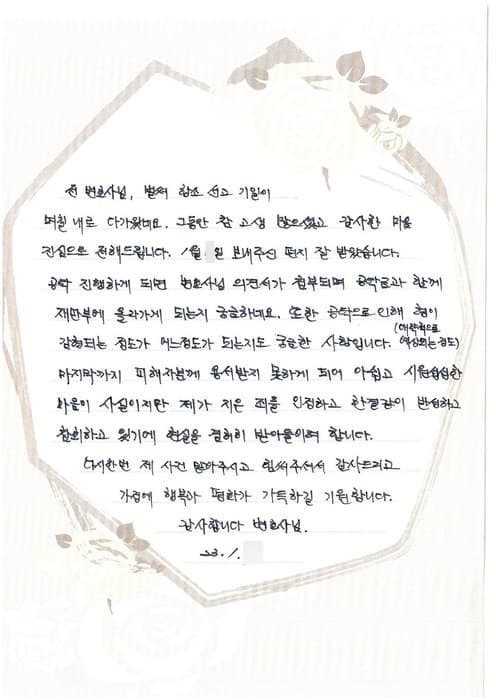 전 변호사님, 벌써 항소 선고 기일이
며칠 내로 다가왔네요. 그동안 참 고생 많으셨고 감사한 마음
진심으로 전해드립니다. 1월 일 보내주신 편지 잘 받았습니다.
공탁 진행하게 되면 변호사님 의견서가 첨부되며 공탁금과 함께
재판부에 올라가게 되는지 궁금하네요. 또한 공탁으로 인해 형이
(대략적으로
감형되는 정도가 어느정도가 되는지도 궁금한 사항입니다. 예상되는 정도)
마지막까지 피해자분께 용서받지 못하게 되어 아쉽고 시원섭섭한
마음이 사실이지만 제가 지은 죄를 인정하고 한결같이 반성하고
참회하고 있기에 현실을 겸허히 받아들이려 합니다.
다시한번 제 사건 맡아주시고 힘써주셔서 감사드리고
가정에 행복과 평화가 가득하길 기원합니다.
감사합니다 변호사님.
23. 1.